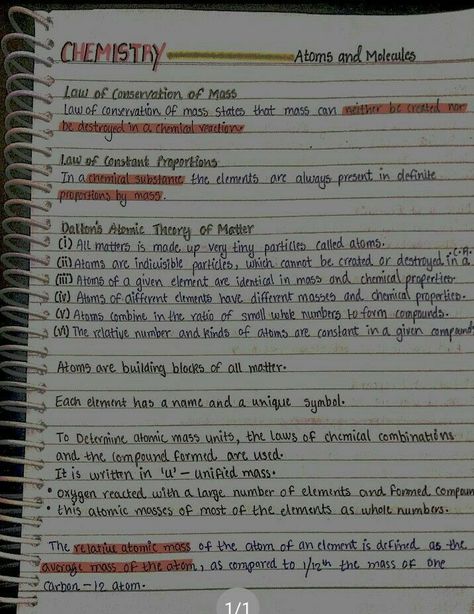 CHEMISTRY Atoms and Molecules
Law of Conservation of Mass
Law of conservation of mass states that mass can neither be created nor
be destroyed in a chemical reaction.
Law of Constant Proportions
In a chemical substance the elements are always present in definite
proportions by mass.
Dalton's Atomic Theory of Matter
(i) All matters is made up very tiny particles called atoms.
(ii) Atoms are indivisible particles, which cannot be created or destroyed in a C.R.
(iii) Atoms of a given element are identical in mass and chemical properties
(iv) Atoms of different elements have different masses and chemical properties.
(v) Atoms combine in the ratio of small whole numbers to form compounds.
(vi) The relative number and kinds of atoms are constant in a given compound
Atoms are building blocks of all matter.
Each element has a name and a unique symbol.
To Determine atomic mass units, the laws of chemical combinations
and the compound formed are used.
It is written in 'u' - unified mass.
• oxygen reacted with a large number of elements and formed compoun
• this atomic masses of most of the elements as whole numbers.
The relative atomic mass of the atom of an element is defined as the
average mass of the atom, as compared to 1/12th the mass of one
carbon - 12 atom.
1/1